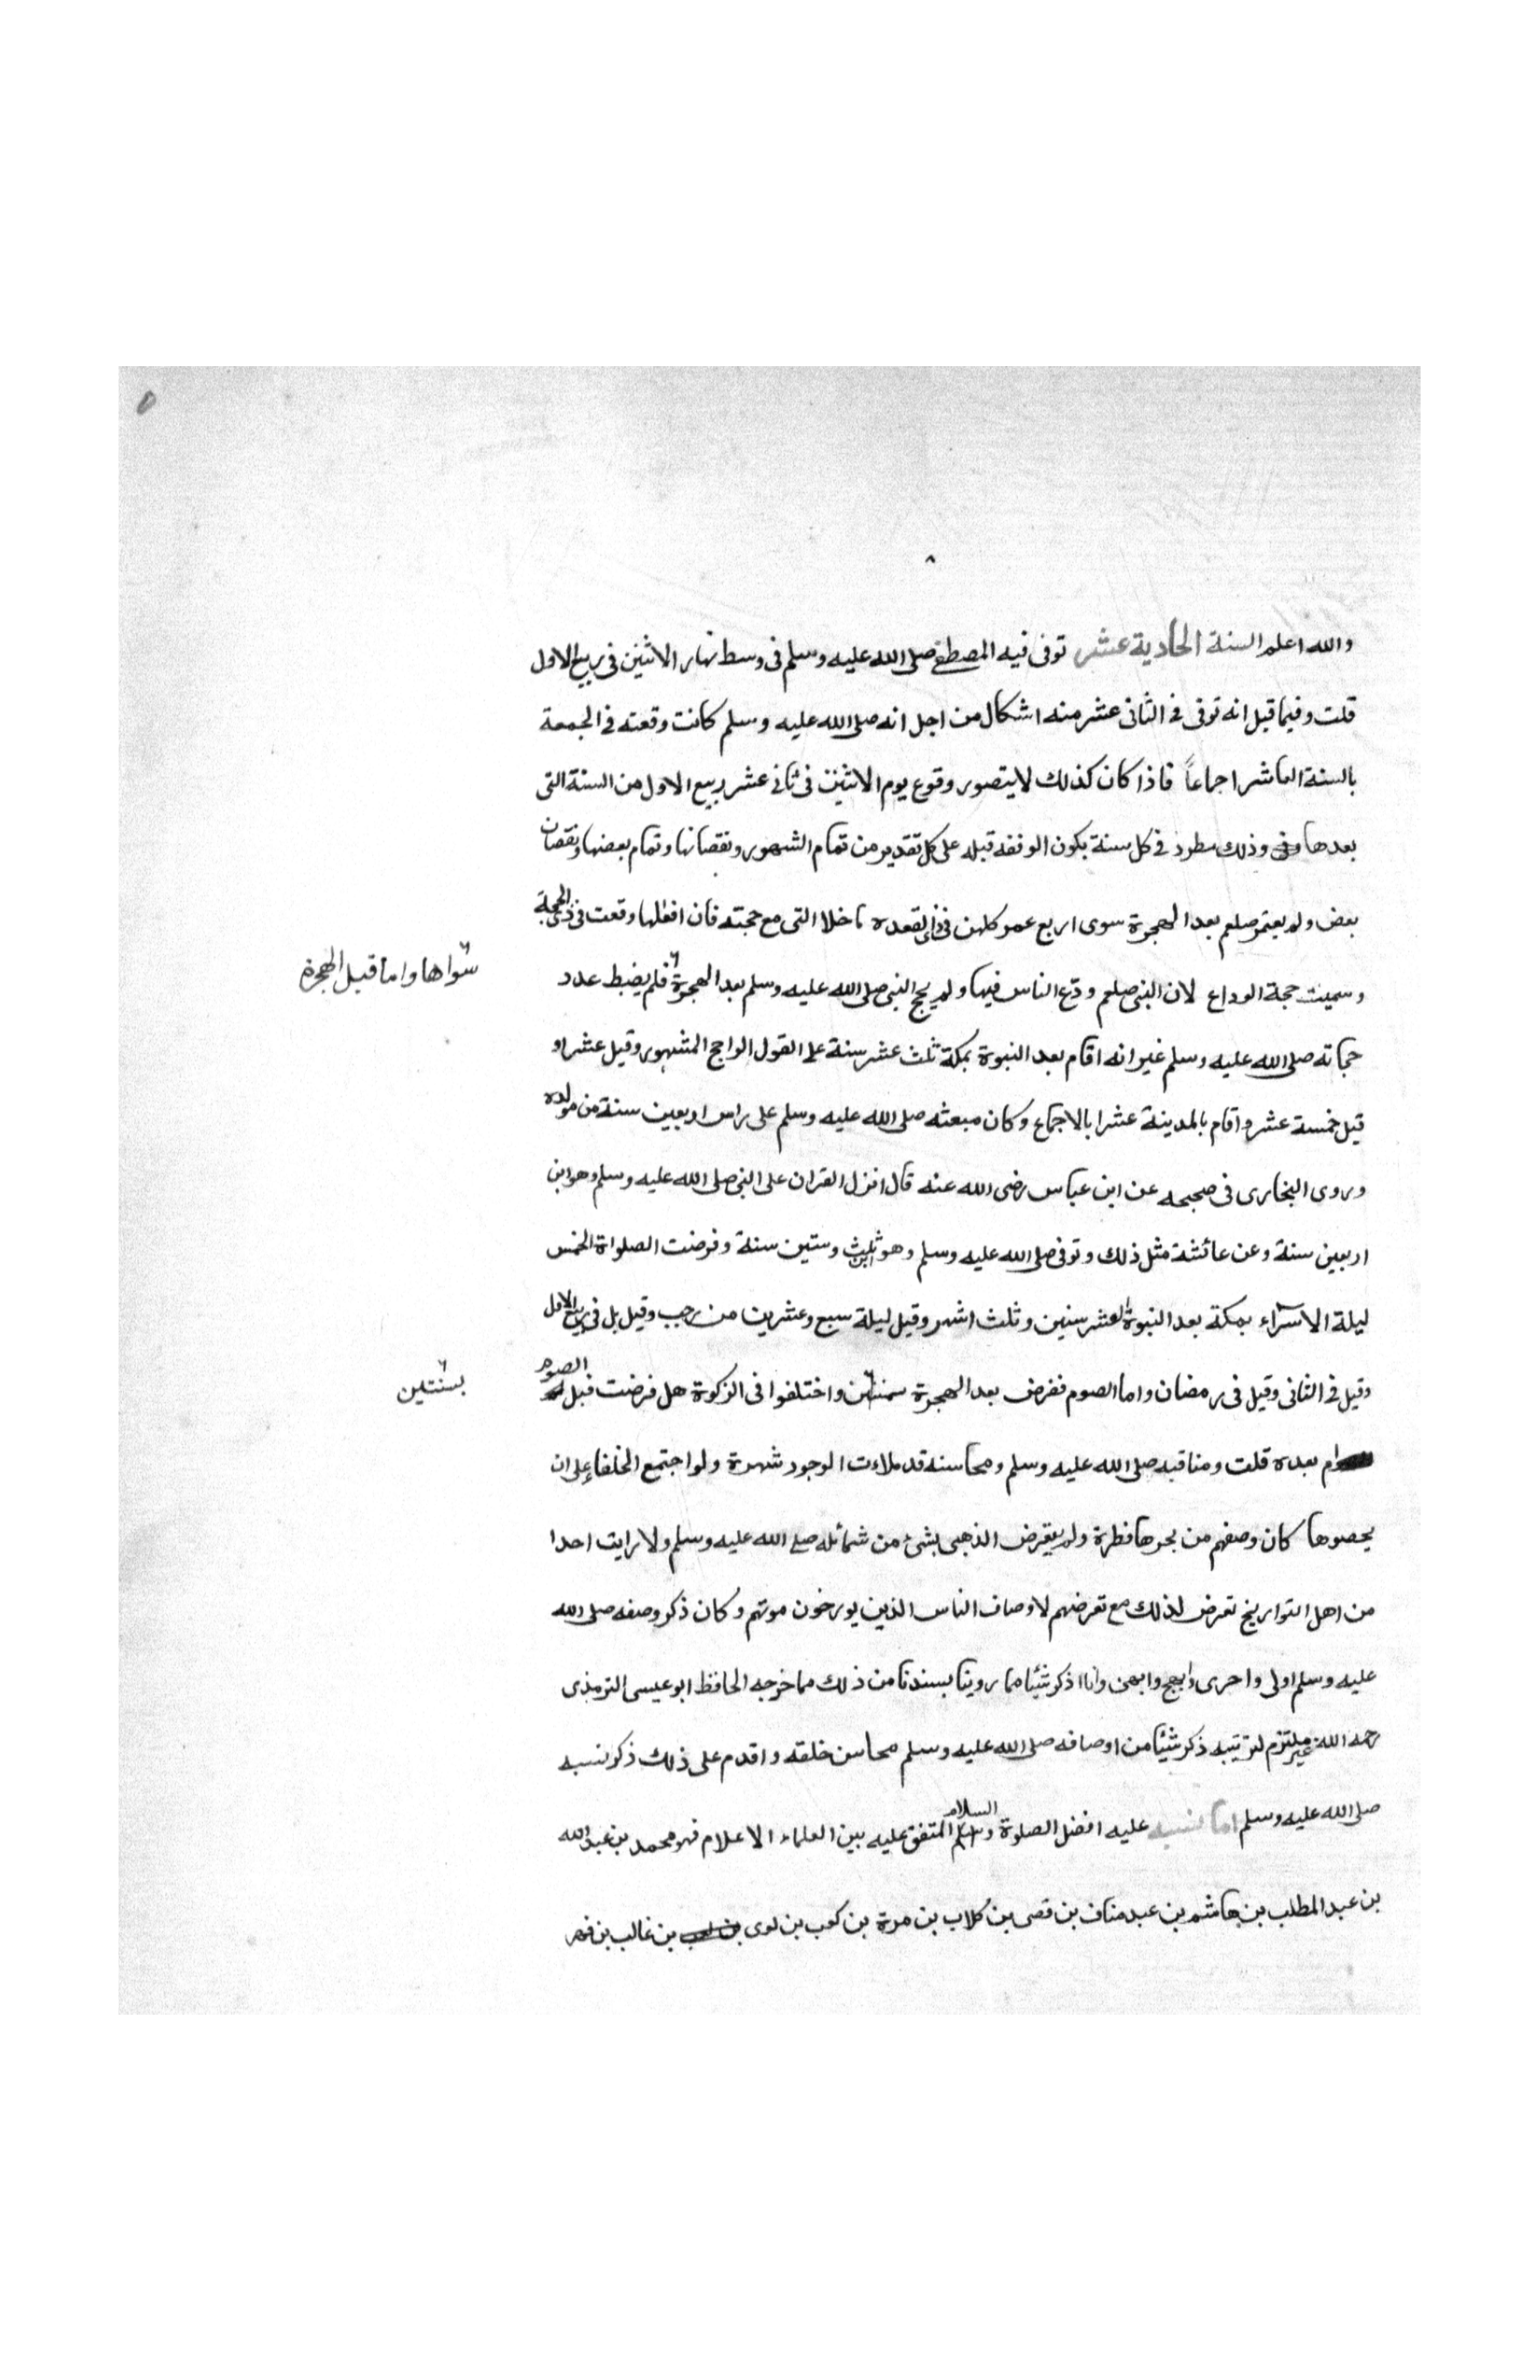 ٥
٨
والله اعلم السنة الحادية عشر توفى فيه المصطفى صلى الله عليه وسلم فى وسط نهار الاثنين فى ربيع الاول
قلت وفيما قيل انه توفى فى الثانى عشر منه اشكال من اجل انه صلى الله عليه وسلم كانت وقعته فى الجمعة
بالسنة العاشر اجماعاً فاذا كان كذلك لا يتصور وقوع يوم الاثنين فى ثانى عشر ربيع الاول من السنة التى
بعدها وذلك مطرد فى كل سنة يكون الوقفه قبله على كل تقدير من تمام الشهور ونقصانها وتمام بعضها ونقصان
بعض ولم يعتمر صلعم بعد الهجرة سوى اربع عمر كلهن فى ذى القعده ما خلا التى مع حجته فان افعلها وقعت فى ذى الحجة
وسميت حجة الوداع لان النبى صلعم ودّع الناس فيها ولم يحج النبى صلى الله عليه وسلم بعد الهجرة فلم يضبط عدد
سواها واما قبل الهجرة
حجاته صلى الله عليه وسلم غير انه اقام بعد النبوة بمكة ثلث عشر سنة على القول الراجح المشهور وقيل عشر او
قيل خمسة عشر واقام بالمدينة عشرا بالاجماع وكان مبعثه صلى الله عليه وسلم على راس اربعين سنة من مولده
وروى البخارى فى صحيحه عن ابن عباس رضى الله عنه قال انزل القران على النبى صلى الله عليه وسلم وهو ابن
اربعين سنة وعن عائشة مثل ذلك وتوفى صلى الله عليه وسلم وهو ابن ثلث وستين سنة وفرضت الصلواة الخمس
ليلة الاسراء بمكة بعد النبوة لعشر سنين وثلث اشهر وقيل ليلة سبع وعشرين من رجب وقيل بل فى ربيع الاول
وقيل فى الثانى وقيل فى رمضان واما الصوم ففرض بعد الهجرة سنتين واختلفوا فى الزكوة هل فرضت قبل الصوم
بسنتين
ام بعده قلت ومناقبه صلى الله عليه وسلم ومحاسنه قد ملاءت الوجود شهرة ولو اجتمع الخلفاء على ان
يحصوها كان وصفهم من بحرها قطرة ولم يتعرض الذهبى بشئ من شمائله صلى الله عليه وسلم ولا رايت احدا
من اهل التواريخ تعرض لذلك مع تعرضهم لاوصاف الناس الذين يورخون موتهم وكان ذكر وصفه صلى الله
عليه وسلم اولى واحرى وابهج وابهى وانا اذكر شيئا مما روينا بسندنا من ذلك مما خرجه الحافظ ابو عيسى الترمذى
رحمه الله غير ملتزم لترتيبه ذكر شيئا من اوصافه صلى الله عليه وسلم محاسن خلقه واقدم على ذلك ذكر نسبه
صلى الله عليه وسلم اما نسبه عليه افضل الصلوة والسلام المتفق عليه بين العلماء الاعلام فهو محمد بن عبد الله
بن عبد المطلب بن هاشم بن عبد مناف بن قصى بن كلاب بن مرة بن كعب بن لوى بن غالب بن فهر